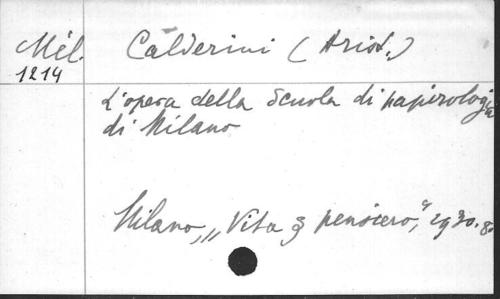 Mél.
1214
Calderini (Arist.)
L'opera della Scuola di papirologia
di Milano
Milano, „Vita e pensiero", 1930. 8o